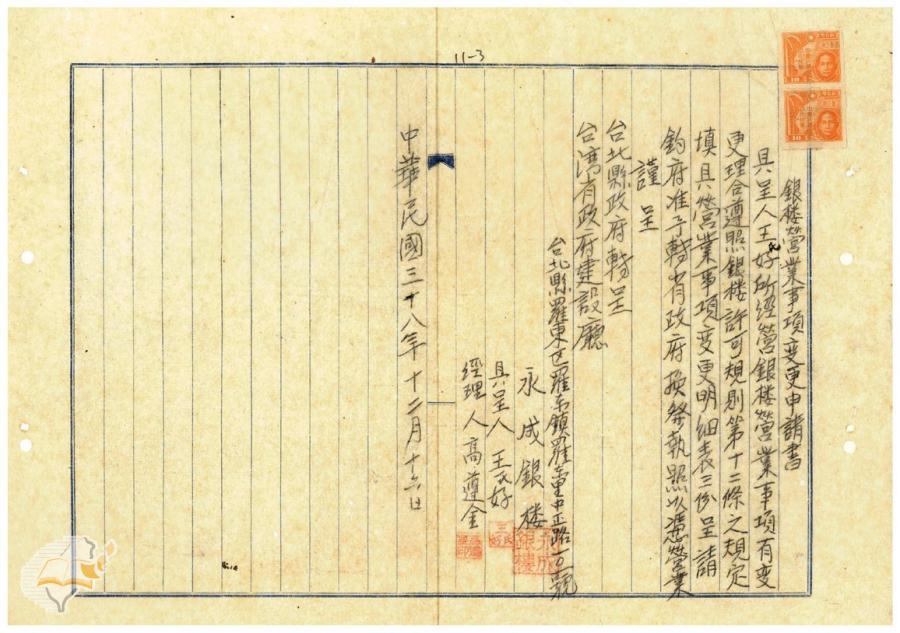 銀楼營業事項变更申請書
具呈人王氏好所經營銀楼營業事項有变
更理合遵照銀楼許可規則第十二條之規定
填具營業事項变更明細表三份呈請
鈞府准予轉省政府換發執照以憑營業
謹呈
台北縣政府轉呈
台湾省政府建設廳
台北縣羅東区羅東鎮羅東里中正路一〇號
永成銀楼
具呈人 王氏好
經理人 高遵金
中華民國三十八年十二月十六日
11-3
永成
銀楼